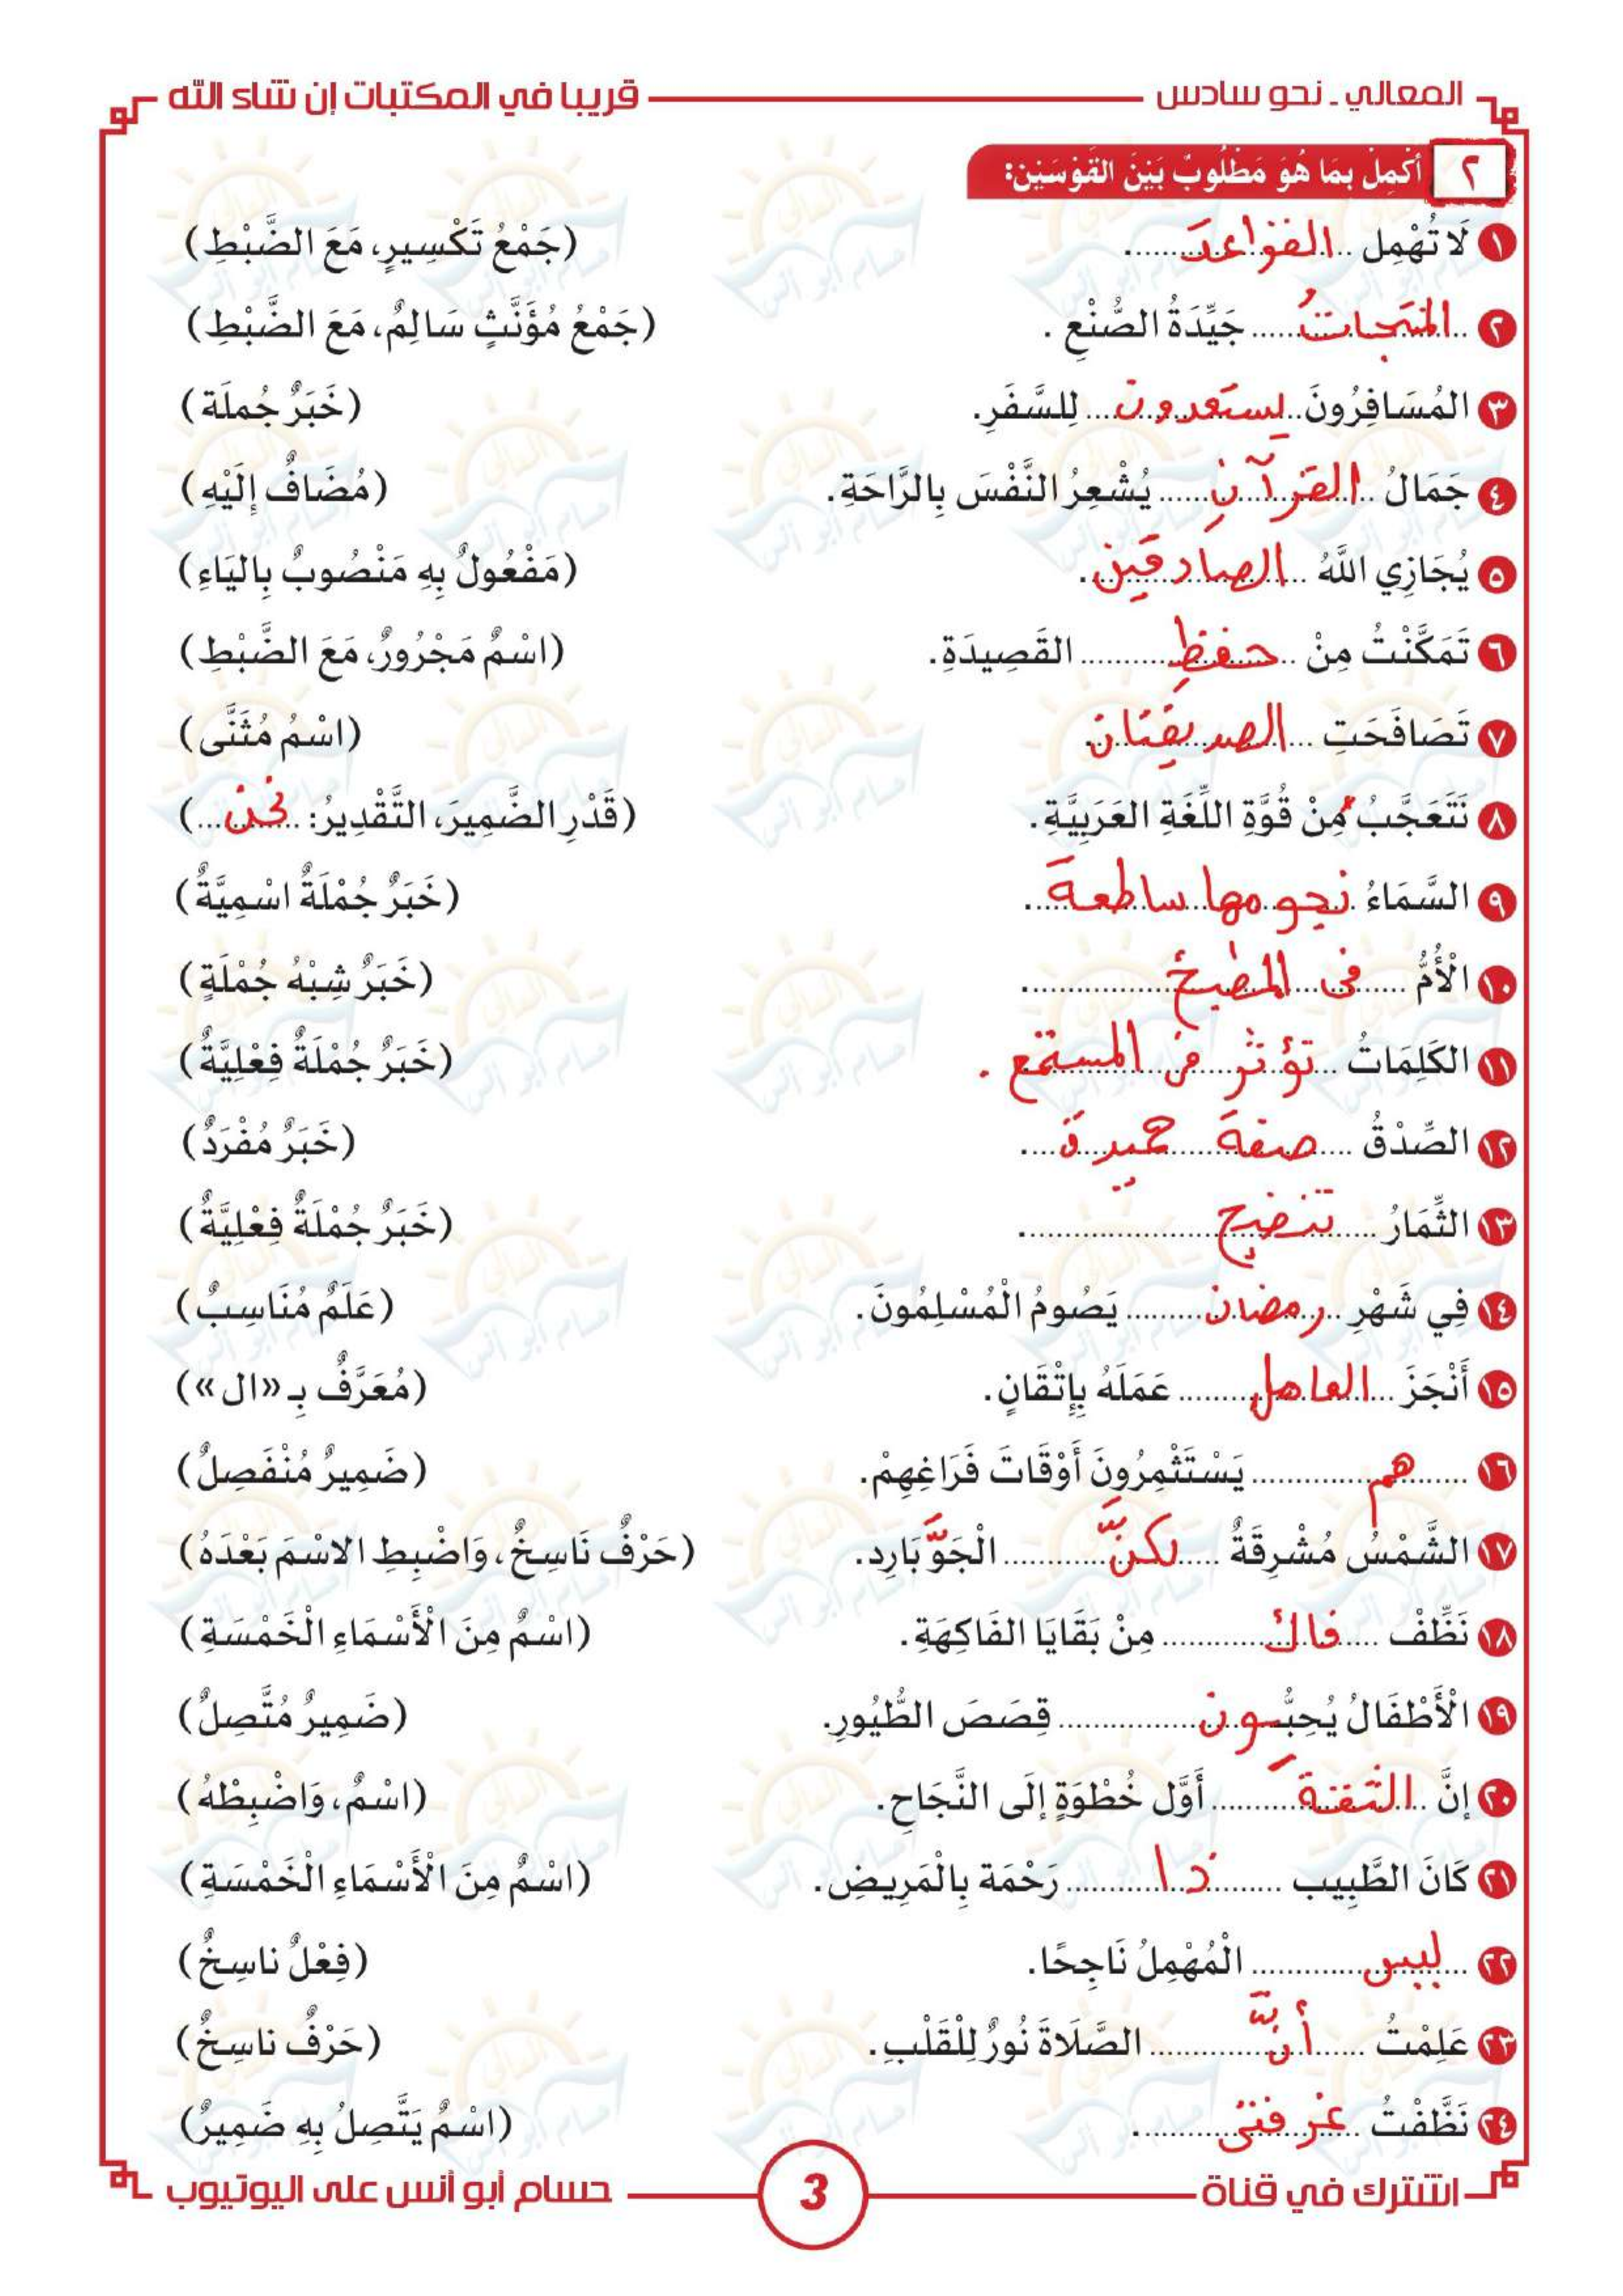 المعالي - نحو سادس
قريبا في المكتبات إن شاء الله
٢ أَكْمِلْ بِمَا هُوَ مَطْلُوبٌ بَيْنَ القَوْسَيْنِ:
١ لَا تُهْمِل القواعدَ. (جَمْعُ تَكْسِيرٍ، مَعَ الضَّبْطِ)
٢ المنتجاتُ جَيِّدَةُ الصُّنْعِ. (جَمْعُ مُؤَنَّثٍ سَالِمٌ، مَعَ الضَّبْطِ)
٣ المُسَافِرُونَ يستعدون لِلسَّفَرِ. (خَبَرٌ جُملَة)
٤ جَمَالُ القرآنِ يُشْعِرُ النَّفْسَ بِالرَّاحَةِ. (مُضَافٌ إِلَيْهِ)
٥ يُجَازِي اللَّهُ الصادقِينَ. (مَفْعُولٌ بِهِ مَنْصُوبٌ بِاليَاءِ)
٦ تَمَكَّنْتُ مِنْ حفظِ القَصِيدَةِ. (اسْمٌ مَجْرُورٌ، مَعَ الضَّبْطِ)
٧ تَصَافَحَتِ الصديقتان. (اسْمُ مُثَنَّى)
٨ نَتَعَجَّبُ مِنْ قُوَّةِ اللُّغَةِ العَرَبِيَّةِ. (قَدْرِ الضَّمِيرَ، التَّقْدِيرُ: نحن)
٩ السَّمَاءُ نجومها ساطعة. (خَبَرٌ جُمْلَةٌ اسْمِيَّةٌ)
١٠ الْأُمُّ فى المطبخ. (خَبَرٌ شِبْهُ جُمْلَةٍ)
١١ الكَلِمَاتُ تؤثر فى المستمع. (خَبَرٌ جُمْلَةٌ فِعْلِيَّةٌ)
١٢ الصِّدْقُ صفة حميدة. (خَبَرٌ مُفْرَدٌ)
١٣ الثِّمَارُ تنضج. (خَبَرٌ جُمْلَةٌ فِعْلِيَّةٌ)
١٤ فِي شَهْرِ رمضان يَصُومُ الْمُسْلِمُونَ. (عَلَمٌ مُنَاسِبٌ)
١٥ أَنْجَزَ العامل عَمَلَهُ بِإِتْقَانٍ. (مُعَرَّفٌ بـ «ال»)
١٦ هم يَسْتَثْمِرُونَ أَوْقَاتَ فَرَاغِهِمْ. (ضَمِيرٌ مُنْفَصِلٌ)
١٧ الشَّمْسُ مُشْرِقَةٌ لكنَّ الْجَوَّ بَارِد. (حَرْفٌ نَاسِخٌ، وَاضْبِطِ الاسْمَ بَعْدَهُ)
١٨ نَظِّفْ فاك مِنْ بَقَايَا الفَاكِهَةِ. (اسْمٌ مِنَ الْأَسْمَاءِ الْخَمْسَةِ)
١٩ الْأَطْفَالُ يُحِبُّـون قِصَصَ الطُّيُورِ. (ضَمِيرٌ مُتَّصِلٌ)
٢٠ إِنَّ الثقةَ أَوَّل خُطْوَةٍ إِلَى النَّجَاحِ. (اسْمٌ، وَاضْبِطْهُ)
٢١ كَانَ الطَّبِيب ذا رَحْمَة بِالْمَرِيضِ. (اسْمٌ مِنَ الْأَسْمَاءِ الْخَمْسَةِ)
٢٢ ليس الْمُهْمِلُ نَاجِحًا. (فِعْلٌ ناسِخٌ)
٢٣ عَلِمْتُ أنَّ الصَّلَاةَ نُورٌ لِلْقَلْبِ. (حَرْفٌ ناسِخٌ)
٢٤ نَظَّفْتُ غرفتى. (اسْمٌ يَتَّصِلُ بِهِ ضَمِيرٌ)
اشترك في قناة
3
حسام أبو أنس على اليوتيوب